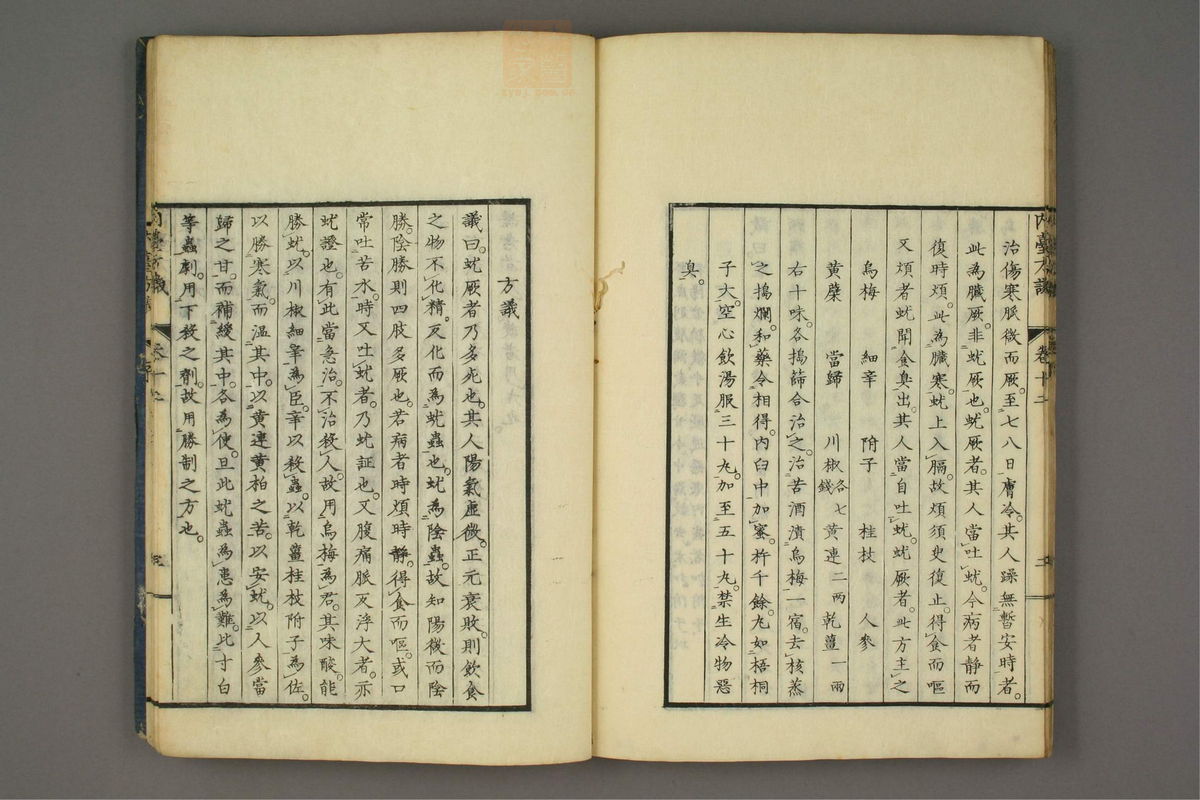 治傷寒脈微而厥。至七八日膚冷。其人躁無暫安時者。
此為臟厥。非蚘厥也。蚘厥者。其人當吐蚘。今病者静而
復時煩。此為臟寒。蚘上入膈。故煩。須臾復止。得食而嘔
又煩者。蚘聞食臭出。其人當自吐蚘。蚘厥者。此方主之
烏梅 細辛 附子 桂枝 人參
黄蘗 當歸 川椒各七錢 黄連二兩 乾薑一兩
右十味。各搗篩。合治之。治苦酒漬烏梅一宿。去核蒸
之搗爛。和藥令相得。内臼中。加蜜。杵千餘。丸如梧桐
子大。空心飲湯服三十丸。加至五十丸。禁生冷物惡
臭。
方議
議曰。蚘厥者乃多死也。其人陽氣虛微。正元衰敗。則飲食
之物不化精。反化而為蚘蟲也。蚘為陰蟲。故知陽微而陰
勝。陰勝則四肢多厥也。若病者時煩時静。得食而嘔。或口
常吐苦水。時又吐蚘者。乃蚘証也。又腹痛脈反浮大者。亦
蚘證也。有此當急治。不治殺人。故用烏梅為君。其味酸。能
勝蚘。以川椒細辛為臣。辛以殺蟲。以乾薑桂枝附子為佐。
以勝寒氣。而温其中。以黄連黄柏之苦。以安蚘。以人參當
歸之甘。而補緩其中。各為使。且此蚘蟲為患為難。比寸白
等蟲劇。用下殺之劑。故用勝制之方也。
内臺方議
卷十二